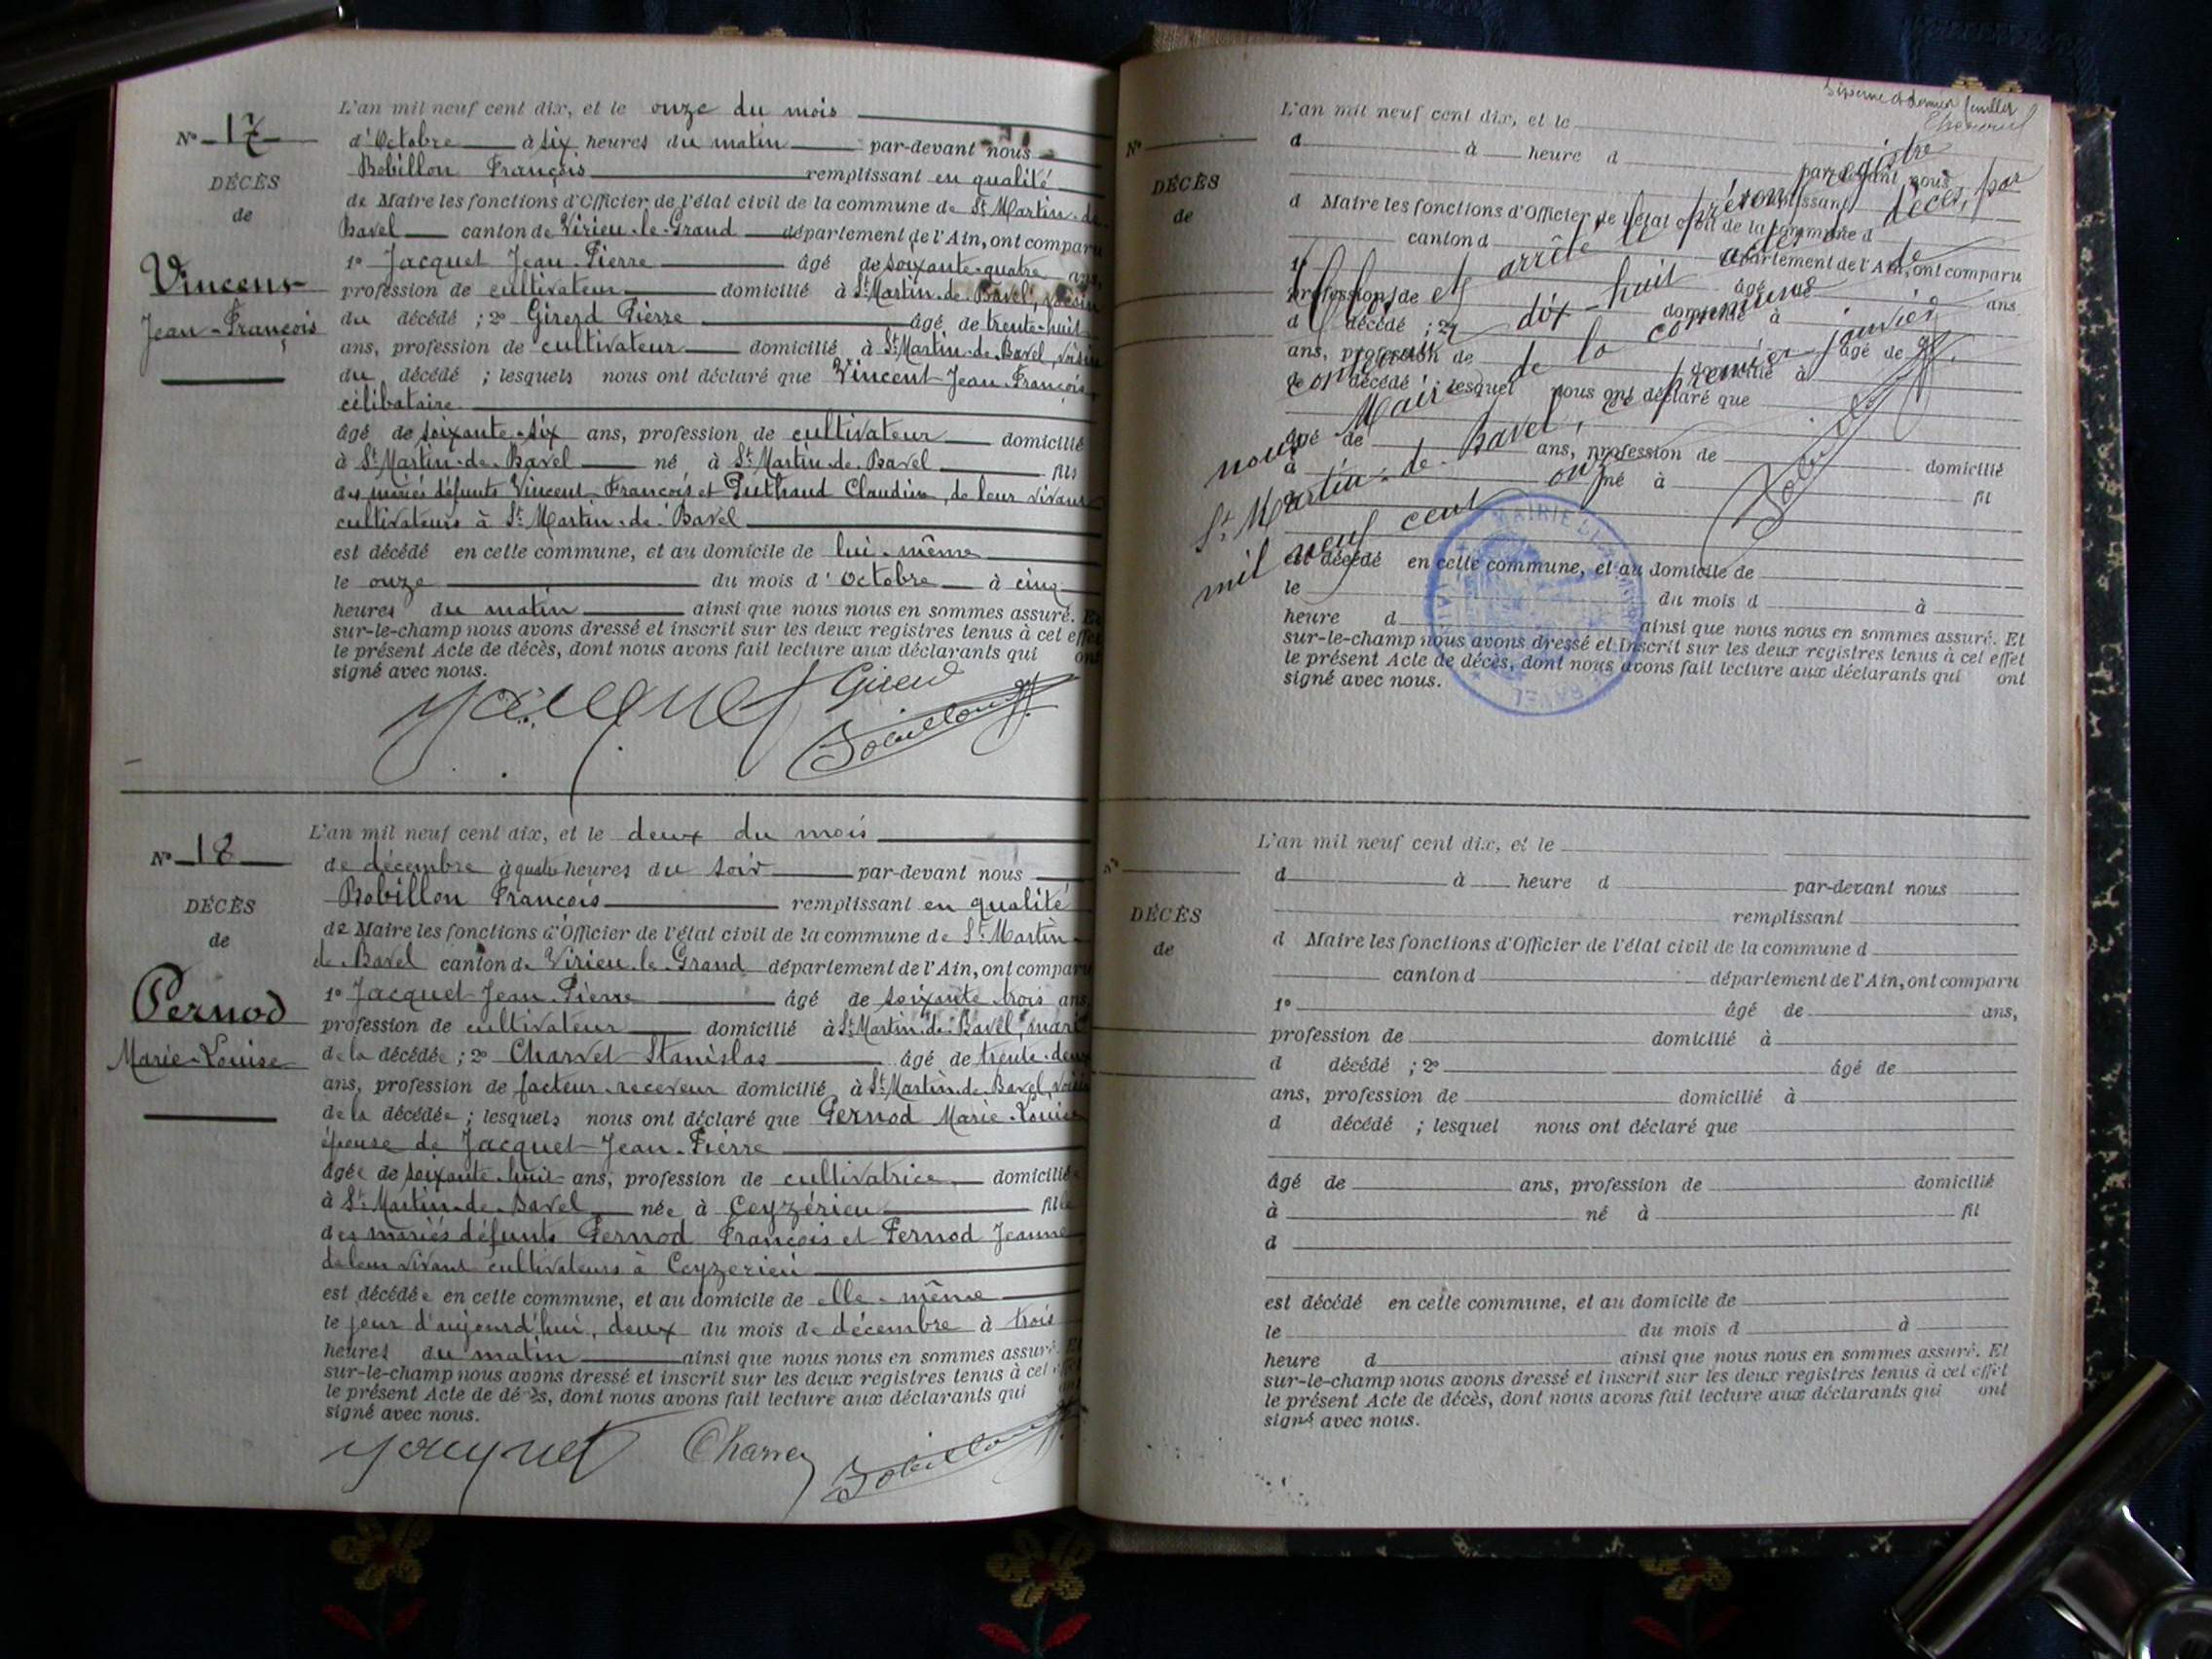 L'an mil neuf cent dix, et le onze du mois
N° 17
d'Octobre à six heures du matin par-devant nous
Bobillon François remplissant en qualité
DÉCÈS
de Maire les fonctions d'Officier de l'état civil de la commune de St Martin-de-
de
Bavel canton de Virieu-le-Grand département de l'Ain, ont comparu
1° Jacquet Jean-Pierre âgé de soixante-quatre ans,
Vincent
profession de cultivateur domicilié à St Martin-de-Bavel, voisin
Jean-François
du décédé ; 2° Girerd Pierre âgé de trente-huit
ans, profession de cultivateur domicilié à St Martin-de-Bavel, voisin
du décédé ; lesquels nous ont déclaré que Vincent Jean François,
célibataire
âgé de soixante-six ans, profession de cultivateur domicilié
à St Martin-de-Bavel né à St Martin-de-Bavel fils
des mariés défunts Vincent François et Claudine, de leur vivant
cultivateurs à St Martin-de-Bavel
est décédé en cette commune, et au domicile de lui-même
le onze du mois d'Octobre à cinq
heures du matin ainsi que nous nous en sommes assuré. Et
sur-le-champ nous avons dressé et inscrit sur les deux registres tenus à cet effet
le présent Acte de décès, dont nous avons fait lecture aux déclarants qui ont
signé avec nous.
Jacquet Girerd
Bobillon
L'an mil neuf cent dix, et le deux du mois
N° 18
de décembre à quatre heures du soir par-devant nous
Bobillon François remplissant en qualité
DÉCÈS
de Maire les fonctions d'Officier de l'état civil de la commune de St Martin-
de
de-Bavel canton de Virieu-le-Grand département de l'Ain, ont comparu
1° Jacquet Jean-Pierre âgé de soixante-trois ans,
Pernod
profession de cultivateur domicilié à St Martin-de-Bavel, mari
Marie-Louise
de la décédée ; 2° Charvet Stanislas âgé de trente-deux
ans, profession de facteur-receveur domicilié à St Martin-de-Bavel, voisin
de la décédée ; lesquels nous ont déclaré que Pernod Marie-Louise
épouse de Jacquet Jean-Pierre
âgée de soixante-huit ans, profession de cultivatrice domiciliée
à St Martin-de-Bavel née à Ceyzérieu fille
des mariés défunts Pernod François et Pernod Jeanne
de leur vivant cultivateurs à Ceyzerieu
est décédée en cette commune, et au domicile de elle-même
le jour d'aujourd'hui, deux du mois de décembre à trois
heures du matin ainsi que nous nous en sommes assuré. Et
sur-le-champ nous avons dressé et inscrit sur les deux registres tenus à cet effet
le présent Acte de décès, dont nous avons fait lecture aux déclarants qui ont
signé avec nous.
Jacquet Charvet Bobillon
Sixième et dernier feuillet
L'an mil neuf cent dix, et le
N°
d à heure d par-devant nous
DÉCÈS
remplissant
de
d Maire les fonctions d'Officier de l'état civil de la commune d
canton d département de l'Ain, ont comparu
1° âgé de ans
profession de domicilié à
d décédé ; 2° âgé de
ans, profession de domicilié à
d décédé ; lesquel nous ont déclaré que
âgé de ans, profession de domicilié
à né à fil
est décédé en cette commune, et au domicile de
le du mois d à
heure d ainsi que nous nous en sommes assuré. Et
sur-le-champ nous avons dressé et inscrit sur les deux registres tenus à cet effet
le présent Acte de décès, dont nous avons fait lecture aux déclarants qui ont
signé avec nous.
et arrêté le présent registre
contenant dix-huit actes de décès, par
nous Maire de la commune de
St Martin-de-Bavel, ce premier janvier
mil neuf cent onze
Bobillon
MAIRIE
BAVEL
L'an mil neuf cent dix, et le
N°
d à heure d par-devant nous
DÉCÈS
remplissant
de
d Maire les fonctions d'Officier de l'état civil de la commune d
canton d département de l'Ain, ont comparu
1° âgé de ans,
profession de domicilié à
d décédé ; 2° âgé de
ans, profession de domicilié à
d décédé ; lesquel nous ont déclaré que
âgé de ans, profession de domicilié
à né à fil
d
est décédé en cette commune, et au domicile de
le du mois d à
heure d ainsi que nous nous en sommes assuré. Et
sur-le-champ nous avons dressé et inscrit sur les deux registres tenus à cet effet
le présent Acte de décès, dont nous avons fait lecture aux déclarants qui ont
signé avec nous.